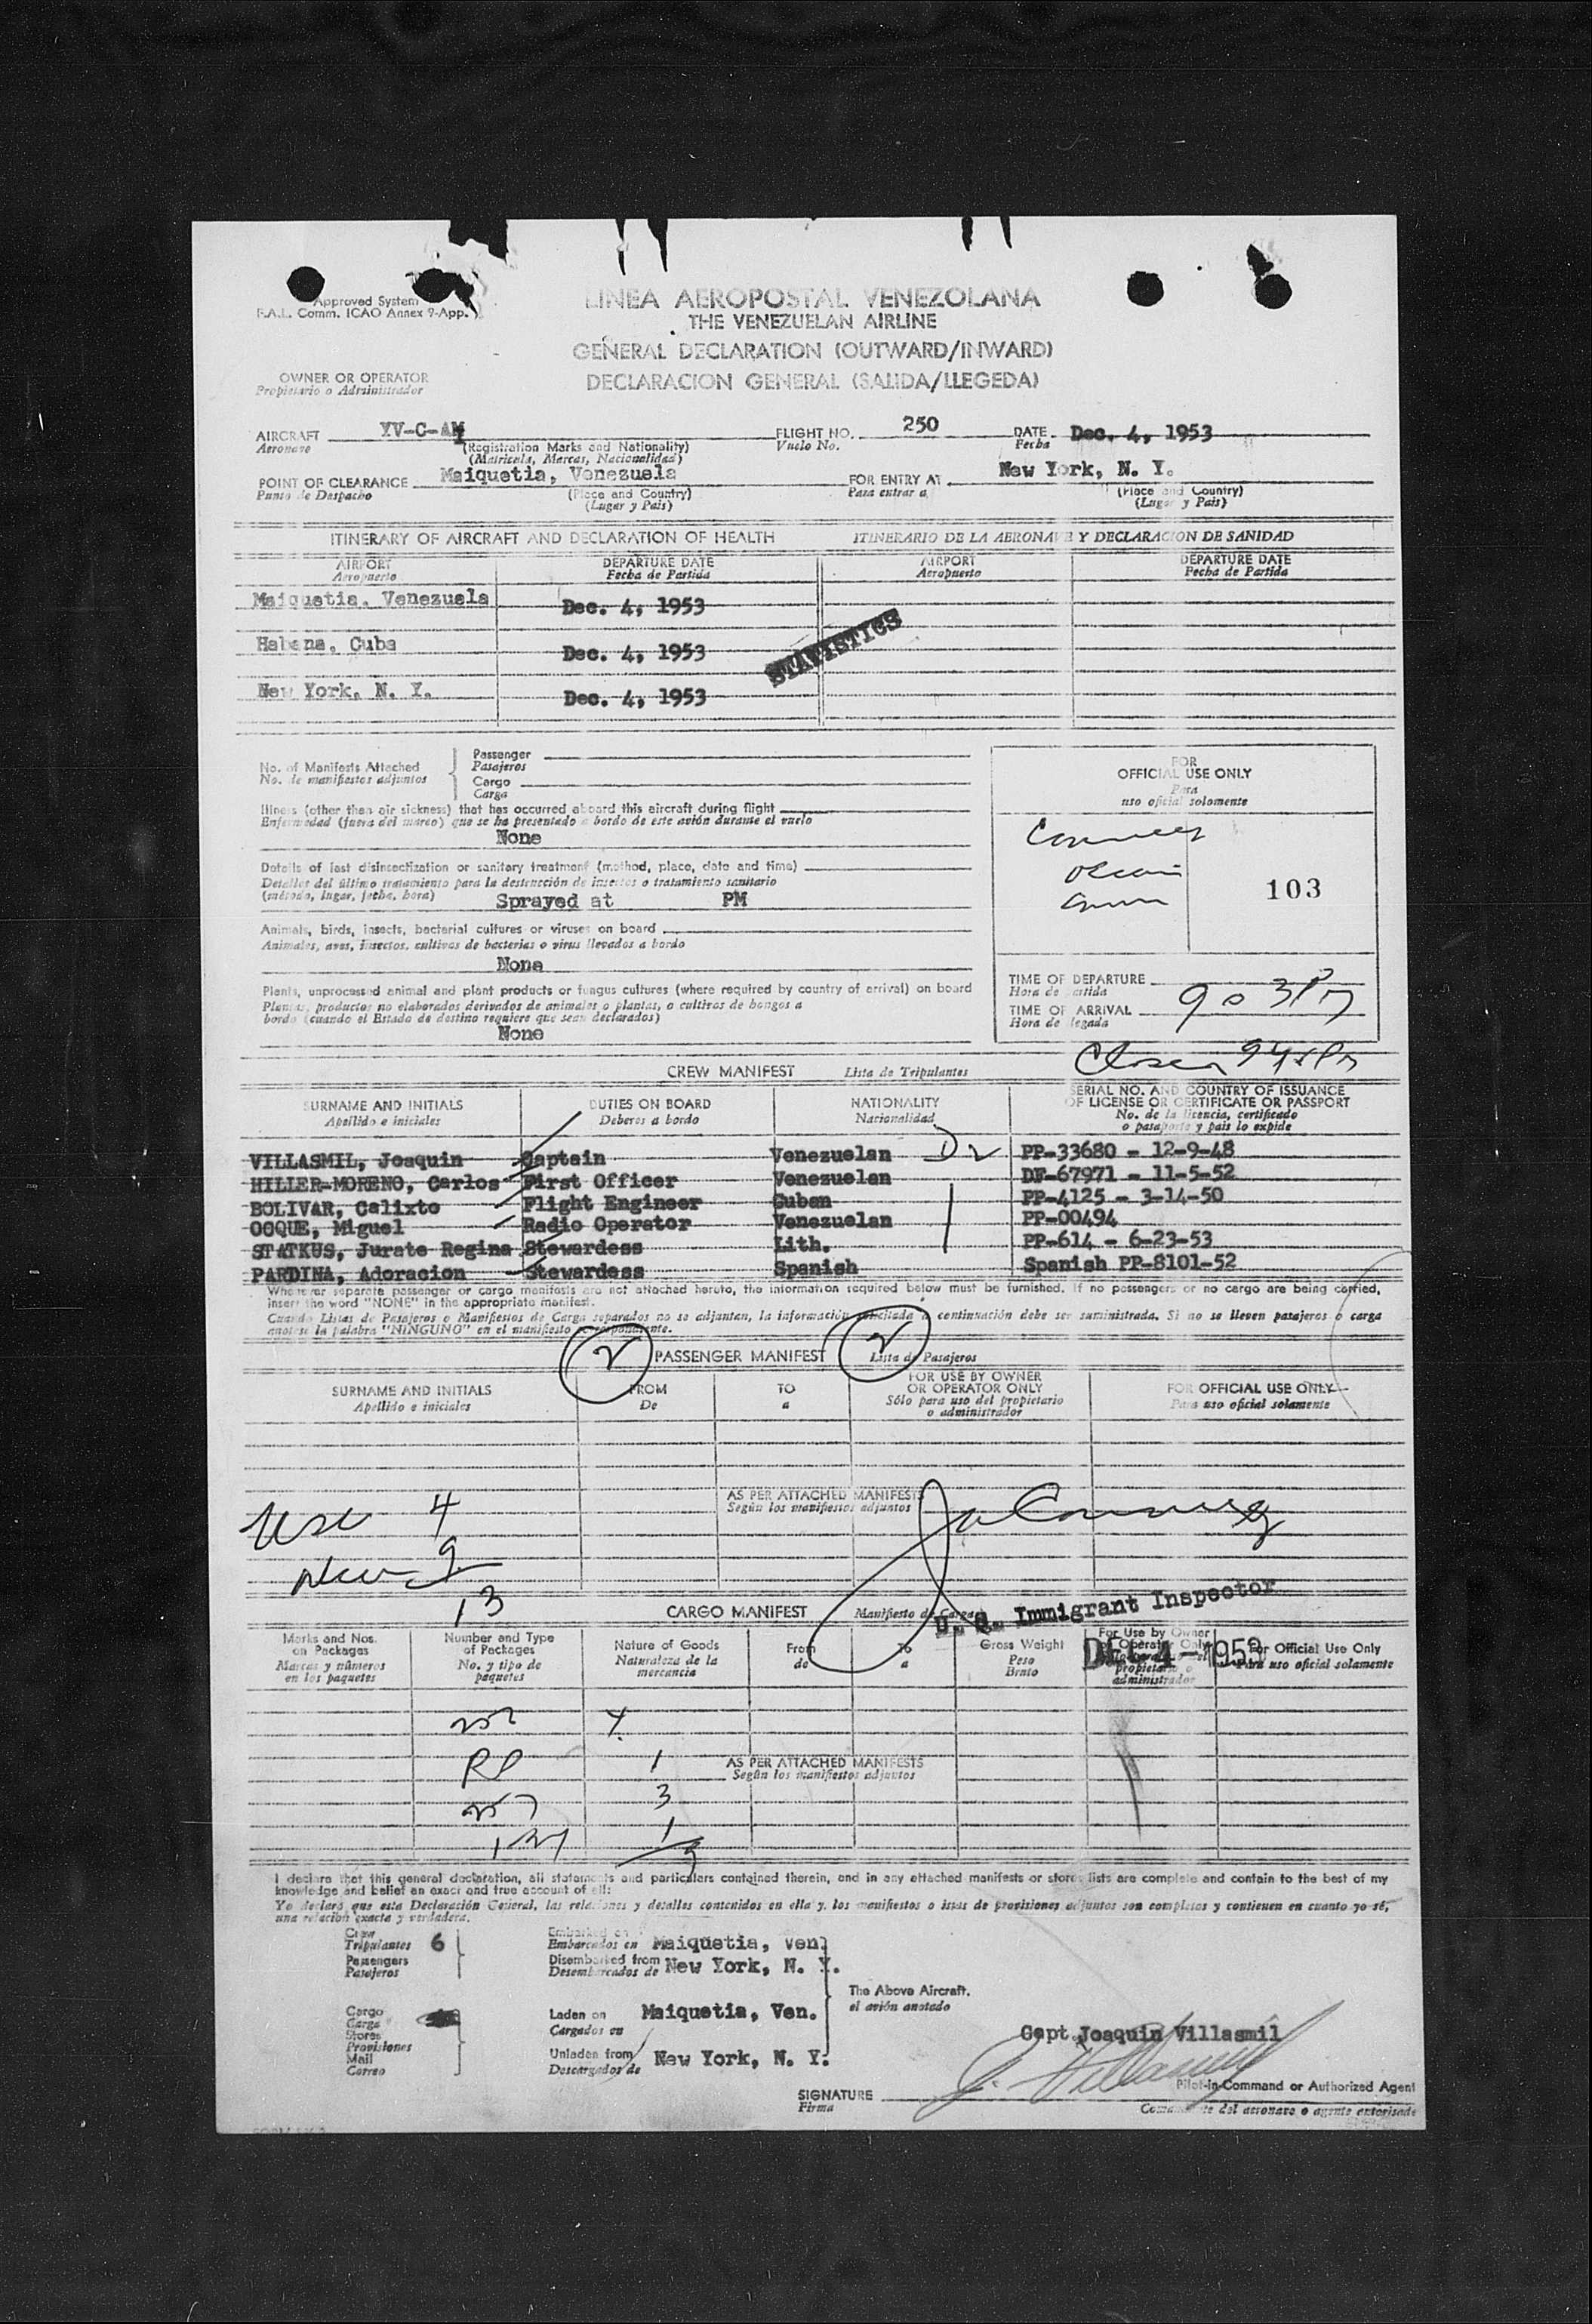 Approved System
F.A.L. Comm. ICAO Annex 9-App.
LINEA AEROPOSTAL VENEZOLANA
THE VENEZUELAN AIRLINE
GENERAL DECLARATION (OUTWARD/INWARD)
DECLARACION GENERAL (SALIDA/LLEGEDA)
OWNER OR OPERATOR
Propietario o Administrador
AIRCRAFT YV-C-AM FLIGHT NO. 250 DATE Dec. 4, 1953
Aeronave (Registration Marks and Nationality) Vuelo No. Fecha
(Matricula, Marcas, Nacionalidad)
POINT OF CLEARANCE Maiquetia, Venezuela FOR ENTRY AT New York, N. Y.
Punto de Despacho (Place and Country) Para entrar a (Place and Country)
(Lugar y Pais) (Lugar y Pais)
ITINERARY OF AIRCRAFT AND DECLARATION OF HEALTH ITINERARIO DE LA AERONAVE Y DECLARACION DE SANIDAD
AIRPORT DEPARTURE DATE AIRPORT DEPARTURE DATE
Aeropuerto Fecha de Partida Aeropuerto Fecha de Partida
Maiquetia, Venezuela Dec. 4, 1953
STATISTICS
Habana, Cuba Dec. 4, 1953
New York, N. Y. Dec. 4, 1953
No. of Manifests Attached
No. de manifiestos adjuntos
Passenger
Pasajeros
Cargo
Carga
Illness (other than air sickness) that has occurred aboard this aircraft during flight
Enfermedad (fuera del mareo) que se ha presentado a bordo de este avión durante el vuelo
None
Details of last disinsectization or sanitary treatment (method, place, date and time)
Detalles del último tratamiento para la destrucción de insectos o tratamiento sanitario
(método, lugar, fecha, hora) Sprayed at PM
Animals, birds, insects, bacterial cultures or viruses on board
Animales, aves, insectos, cultivos de bacterias o virus llevados a bordo
None
Plants, unprocessed animal and plant products or fungus cultures (where required by country of arrival) on board
Plantas, productos no elaborados derivados de animales o plantas, o cultivos de hongos a
bordo (cuando el Estado de destino requiere que sean declarados)
None
FOR
OFFICIAL USE ONLY
Para
uso oficial solamente
103
TIME OF DEPARTURE
Hora de partida
TIME OF ARRIVAL 903PM
Hora de legada
Closed
CREW MANIFEST Lista de Tripulantes
SURNAME AND INITIALS DUTIES ON BOARD NATIONALITY SERIAL NO. AND COUNTRY OF ISSUANCE
Apellido e iniciales Deberes a bordo Nacionalidad OF LICENSE OR CERTIFICATE OR PASSPORT
No. de la licencia, certificado
o pasaporte y pais lo expide
VILLASMIL, Joaquin Captain Venezuelan PP-33680 - 12-9-48
HILLER-MORENO, Carlos First Officer Venezuelan DF-67971 - 11-5-52
BOLIVAR, Calixto Flight Engineer Cuban PP-4125 - 3-14-50
COQUE, Miguel Radio Operator Venezuelan PP-00494
STATKUS, Jurate Regina Stewardess Lith. PP-614 - 6-23-53
PARDINA, Adoracion Stewardess Spanish Spanish PP-8101-52
Wherever separate passenger or cargo manifests are not attached hereto, the information required below must be furnished. If no passengers or no cargo are being carried,
insert the word "NONE" in the appropriate manifest.
Cuando Listas de Pasajeros o Manifiestos de Carga separados no se adjuntan, la información solicitada a continuación debe ser suministrada. Si no se lleven pasajeros o carga
anotese la palabra "NINGUNO" en el manifiesto correspondiente.
2 PASSENGER MANIFEST 2 Lista de Pasajeros
SURNAME AND INITIALS FROM TO FOR USE BY OWNER FOR OFFICIAL USE ONLY
Apellido e iniciales De a OR OPERATOR ONLY Para uso oficial solamente
Sólo para uso del propietario
o administrador
AS PER ATTACHED MANIFESTS
Según los manifiestos adjuntos
USC 4
9
13
CARGO MANIFEST Manifiesto de Carga
U. S. Immigrant Inspector
DEC 4 - 1953
Marks and Nos. Number and Type Nature of Goods From To Gross Weight For Use by Owner For Official Use Only
on Packages of Packages Naturaleza de la de a Peso or Operator Only Para uso oficial solamente
Marcas y números No. y tipo de mercancia Bruto propietario o
en los paquetes paquetes administrador
RP 1
AS PER ATTACHED MANIFESTS
Según los manifiestos adjuntos
3
1
9
I declare that this general declaration, all statements and particulars contained therein, and in any attached manifests or stores lists are complete and contain to the best of my
knowledge and belief an exact and true account of all:
Yo declaro que esta Declaración General, las relaciones y detalles contenidos en ella y los manifiestos o listas de provisiones adjuntos son completos y contienen en cuanto yo sé,
una relación exacta y verdadera.
Crew
Tripulantes 6
Passengers
Pasajeros
Embarked on
Embarcados en Maiquetia, Ven.
Disembarked from
Desembarcados de New York, N. Y.
The Above Aircraft.
el avión anotado
Cargo
Carga
Stores
Provisiones
Mail
Correo
Laden on Maiquetia, Ven.
Cargados en
Unladen from New York, N. Y.
Descargados de
Capt Joaquin Villasmil
J. Villasmil
Pilot-in-Command or Authorized Agent
SIGNATURE
Firma
Comandante del aeronave o agente autorisado